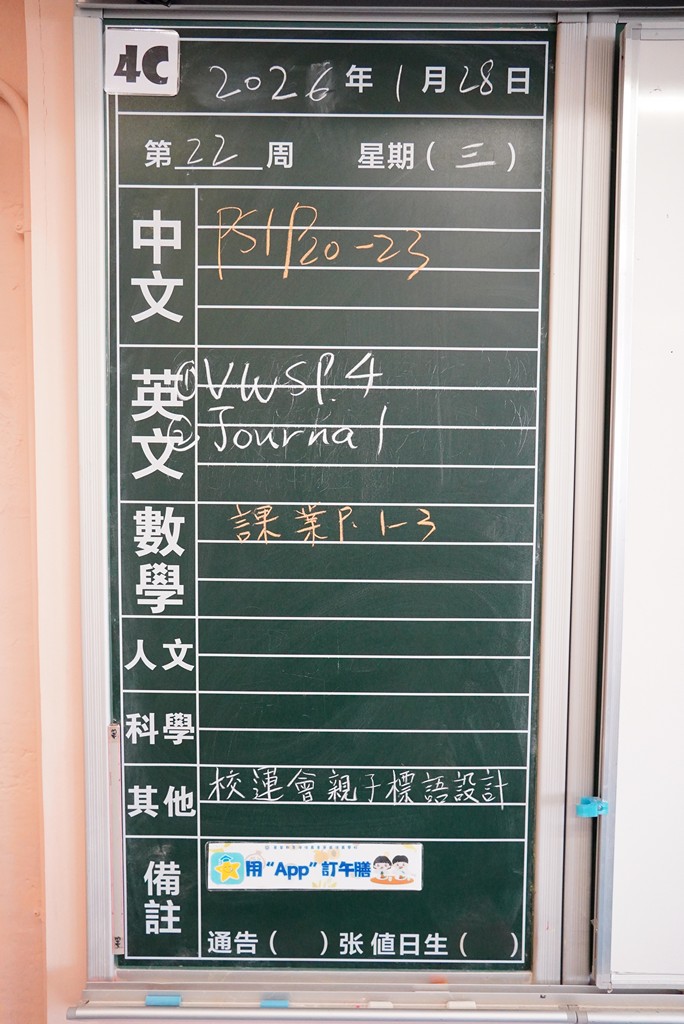 4C
2026年1月28日
第22周 星期(三)
中文
PS1P20-23
英文
①VWSP.4
②Journal
數學
課業P.1-3
人文
科學
其他
校運會親子標語設計
備註
用“App”訂午膳
通告( )张 值日生( )